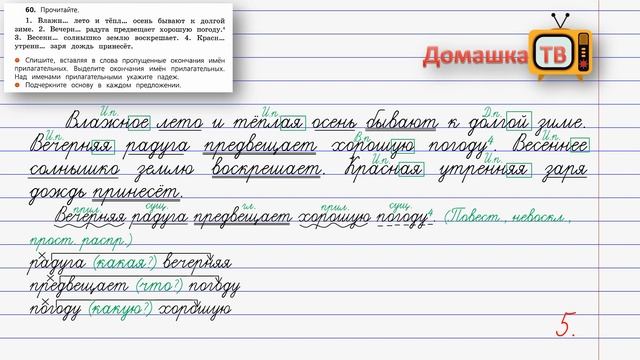 60. Прочитайте.
1. Влажн... лето и тёпл... осень бывают к долгой
зиме. 2. Вечерн... радуга предвещает хорошую погоду.⁴
3. Весенн... солнышко землю воскрешает. 4. Красн...
утренн... заря дождь принесёт.
Спишите, вставляя в слова пропущенные окончания имён
прилагательных. Выделите окончания имён прилагательных.
Над именами прилагательными укажите падеж.
Подчеркните основу в каждом предложении.
Домашка
ТВ
И.п. И.п. Д.п.
Влажное лето и тёплая осень бывают к долгой зиме.
И.п. В.п. И.п.
Вечерняя радуга предвещает хорошую погоду⁴. Весеннее
И.п. И.п.
солнышко землю воскрешает. Красная утренняя заря
дождь принесёт.
прил. сущ. гл. прил. сущ.
Вечерняя радуга предвещает хорошую погоду⁴. (Повест., невоскл.,
прост. распр.)
радуга (какая?) вечерняя
предвещает (что?) погоду
погоду (какую?) хорошую
5.